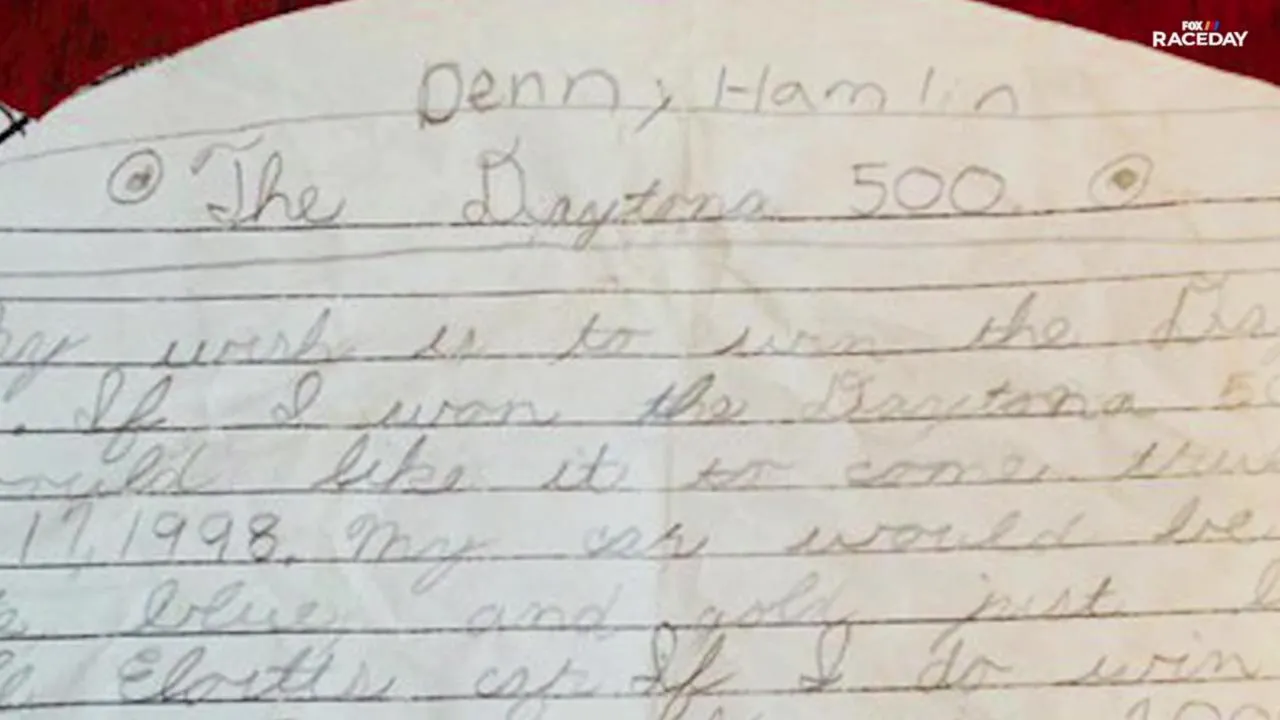 FOX
RACEDAY
Denny Hamlin
The Daytona 500
my wish is to win the Day
. If I won the Daytona 50
would like it to come true
17, 1998. My car would be
blue and gold just l
Eloitts car If I do win